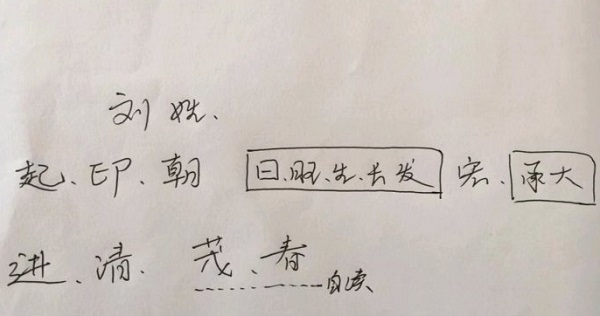 刘姓.
起、印、朝 日.旺.生.长发 宏、承大
进、清、茂、春
自读